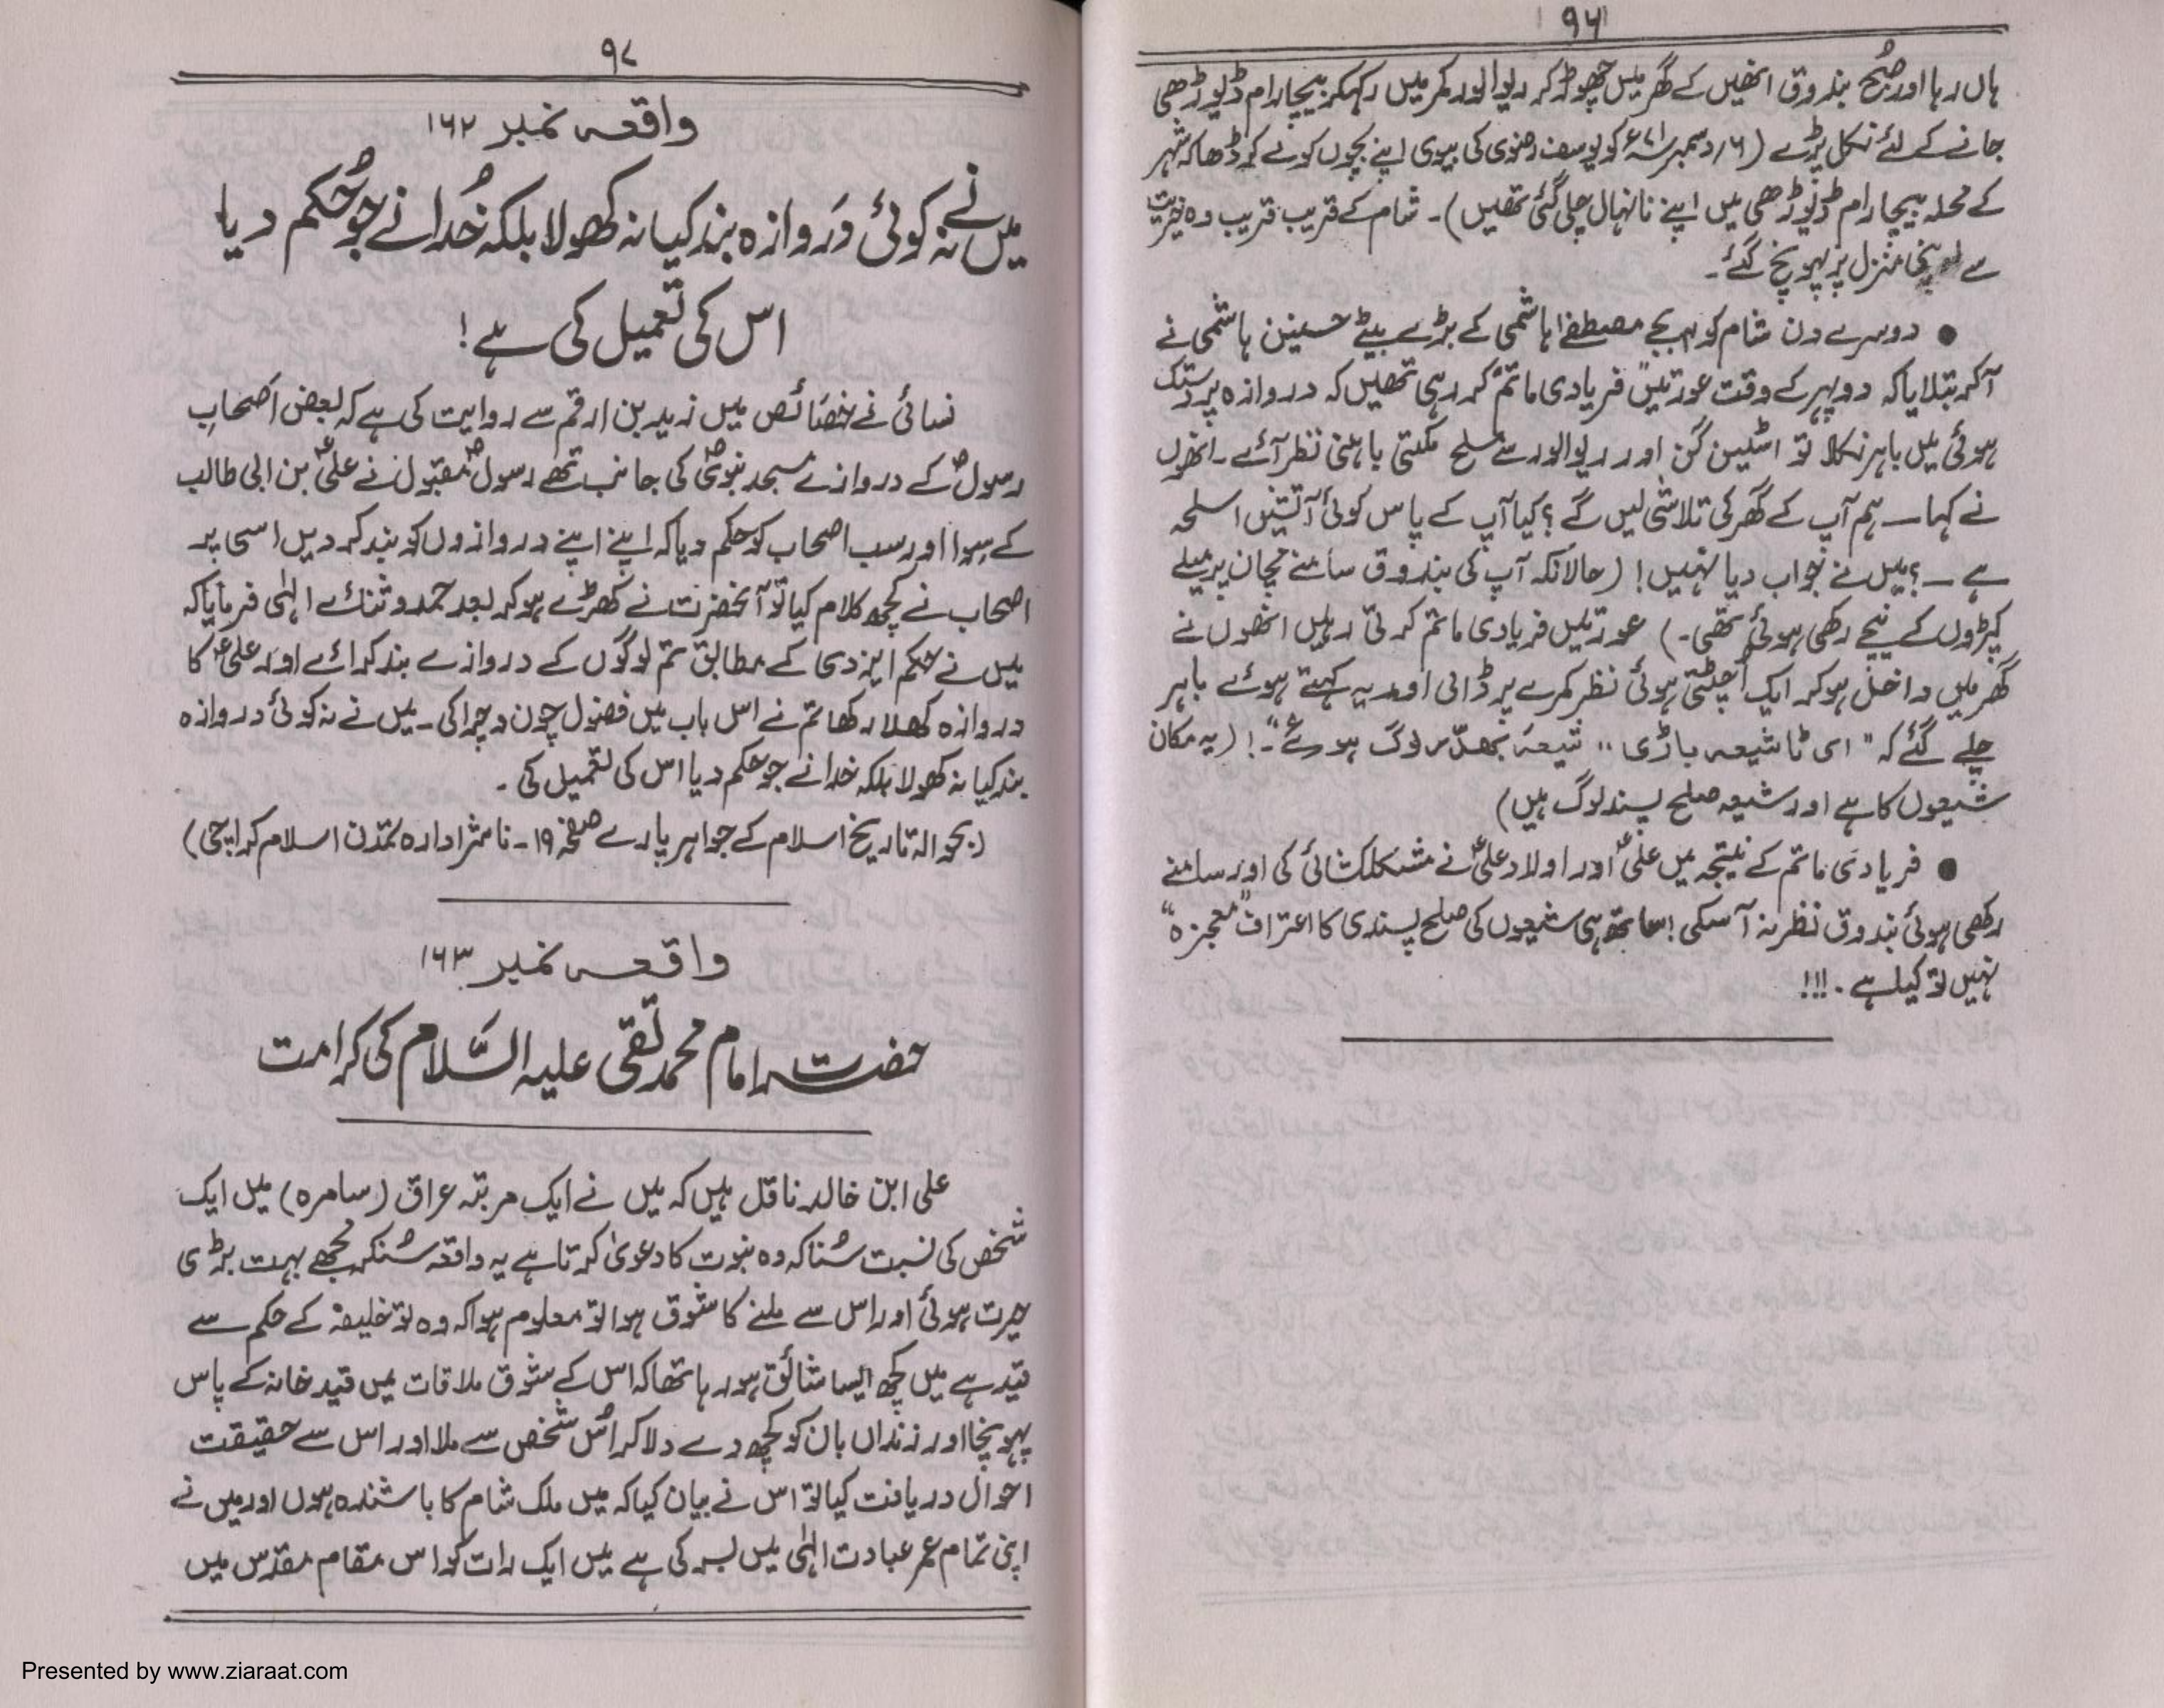 ۹۶
ہاں رہا اور صُبح بندوق انھیں کے گھر میں چھوڑ کر ریوالور کمر میں رکھکر بیچارام ڈیوڑھی
جانے کے لئے نکل پڑے (۱۶؍دسمبر ۷۱ء کو یوسف رضوی کی بیوی اپنے بچوں کو لے کر ڈھاکہ شہر
کے محلہ بیچارام ڈیوڑھی میں اپنے نانہال چلی گئی تھیں)۔ شام کے قریب قریب وہ خیریت
سے اپنی منزل پر پہونچ گئے۔
● دوسرے دن شام کو بجے مصطفےٰ ہاشمی کے بڑے بیٹے حسنین ہاشمی نے
آکر بتلایا کہ دوپہر کے وقت عورتیں "فریادی ماتم" کر رہی تھیں کہ دروازہ پر دستک
ہوئی میں باہر نکلا تو اسٹین گن اور ریوالور سے مسلح مکتی باہنی نظر آئے۔ انھوں
نے کہا — ہم آپ کے گھر کی تلاشی لیں گے؟ کیا آپ کے پاس کوئی آتشیں اسلحہ
ہے —؟ میں نے جواب دیا نہیں! (حالانکہ آپ کی بندوق سامنے مچان پر میلے
کپڑوں کے نیچے رکھی ہوئی تھی۔) عورتیں فریادی ماتم کرتی رہیں انھوں نے
گھر میں داخل ہو کر ایک اُچٹتی ہوئی نظر کمرے پر ڈالی اور یہ کہتے ہوئے باہر
چلے گئے کہ "ای ٹا شیعہ باڑی،، شیعہ بھدّر لوک ہوئے"۔! (یہ مکان
شیعوں کا ہے اور شیعہ صلح پسند لوگ ہیں)
● فریادی ماتم کے نتیجہ میں علیؑ اور اولاد علیؑ نے مشکلکشائی کی اور سامنے
رکھی ہوئی بندوق نظر نہ آ سکی! ساتھ ہی شیعوں کی صلح پسندی کا اعتراف "معجزہ"
نہیں تو کیا ہے۔!!!
۹۷
واقعہ نمبر ۱۶۲
میں نے نہ کوئی دَروازہ بند کیا نہ کھولا بلکہ خُدا نے جو حُکم دیا
اس کی تعمیل کی ہے!
نسائی نے خصَائص میں زید بن ارقم سے روایت کی ہے کہ بعض اَصحابِ
رسولؐ کے دروازے مسجد نبویؐ کی جانب تھے رسولؐ مقبول نے علیؑ بن ابی طالب
کے سِوا اور سب اصحاب کو حکم دیا کہ اپنے اپنے دروازوں کو بند کر دیں اسی پر
اصحاب نے کچھ کلام کیا تو آنحضرت نے کھڑے ہو کر بعد حمد و ثنائے الٰہی فرمایا کہ
میں نے حکم ایزدی کے مطابق تم لوگوں کے دروازے بند کرائے اور علیؑ کا
دروازہ کھلا رکھا تم نے اس باب میں فضول چون و چرا کی۔ میں نے نہ کوئی دروازہ
بند کیا نہ کھولا بلکہ خدا نے جو حکم دیا اس کی تعمیل کی۔
(بحوالہ تاریخ اسلام کے جواہر پارے صفحہ ۱۹۔ ناشر ادارہ تمدن اسلام کراچی)
واقعہ نمبر ۱۶۳
حضرت امام محمد تقی علیہ السَّلام کی کرامت
علی ابن خالد ناقل ہیں کہ میں نے ایک مرتبہ عراق (سامرہ) میں ایک
شخص کی نسبت سُنا کہ وہ نبوت کا دعویٰ کرتا ہے یہ واقعہ سُنکر مجھے بہت بڑی
حیرت ہوئی اور اس سے ملنے کا شوق ہوا تو معلوم ہوا کہ وہ تو خلیفہ کے حکم سے
قید ہے میں کچھ ایسا شائق ہو رہا تھا کہ اس کے شوق ملاقات میں قید خانہ کے پاس
پہونچا اور زنداں بان کو کچھ دے دلا کر اُس شخص سے ملا اور اس سے حقیقت
احوال دریافت کیا تو اس نے بیان کیا کہ میں ملک شام کا باشندہ ہوں اور میں نے
اپنی تمام عمر عبادت الٰہی میں بسر کی ہے میں ایک رات کو اس مقام مقدس میں
Presented by www.ziaraat.com